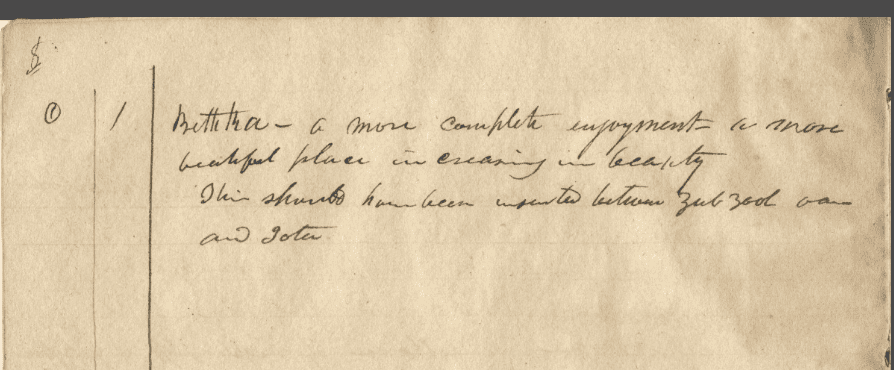 1 Beth ka - a more complete enjoyment - a more
beatiful place increasing in beauty
This should have been inserted between Zub Zool oan
and Iota